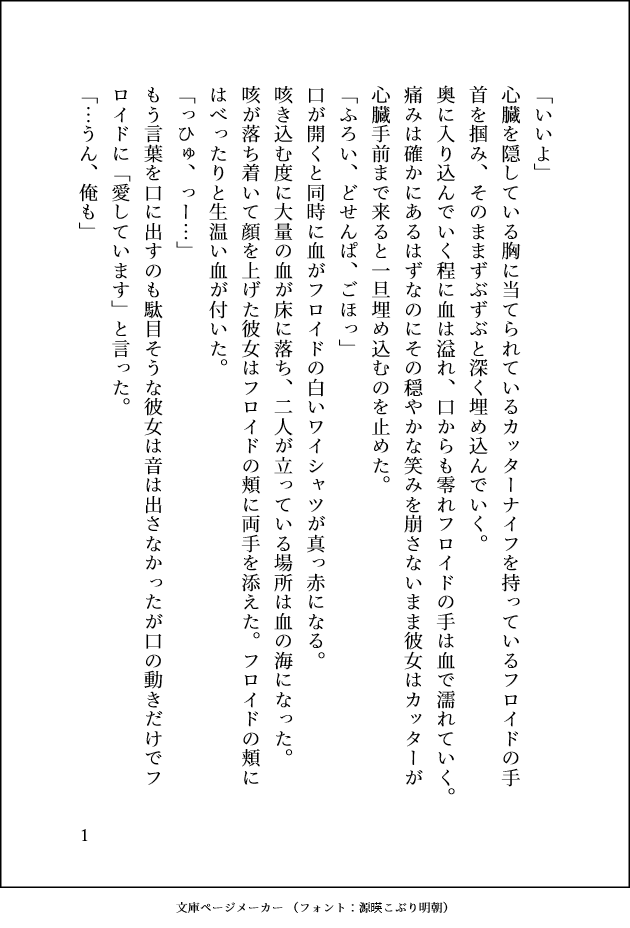 「いいよ」
心臓を隠している胸に当てられているカッターナイフを持っているフロイドの手
首を掴み、そのままずぶずぶと深く埋め込んでいく。
奥に入り込んでいく程に血は溢れ、口からも零れフロイドの手は血で濡れていく。
痛みは確かにあるはずなのにその穏やかな笑みを崩さないまま彼女はカッターが
心臓手前まで来ると一旦埋め込むのを止めた。
「ふろい、どせんぱ、ごほっ」
口が開くと同時に血がフロイドの白いワイシャツが真っ赤になる。
咳き込む度に大量の血が床に落ち、二人が立っている場所は血の海になった。
咳が落ち着いて顔を上げた彼女はフロイドの頬に両手を添えた。フロイドの頬に
はべったりと生温い血が付いた。
「っひゅ、っー…」
もう言葉を口に出すのも駄目そうな彼女は音は出さなかったが口の動きだけでフ
ロイドに「愛しています」と言った。
「…うん、俺も」
1
文庫ページメーカー（フォント：源暎こぶり明朝）